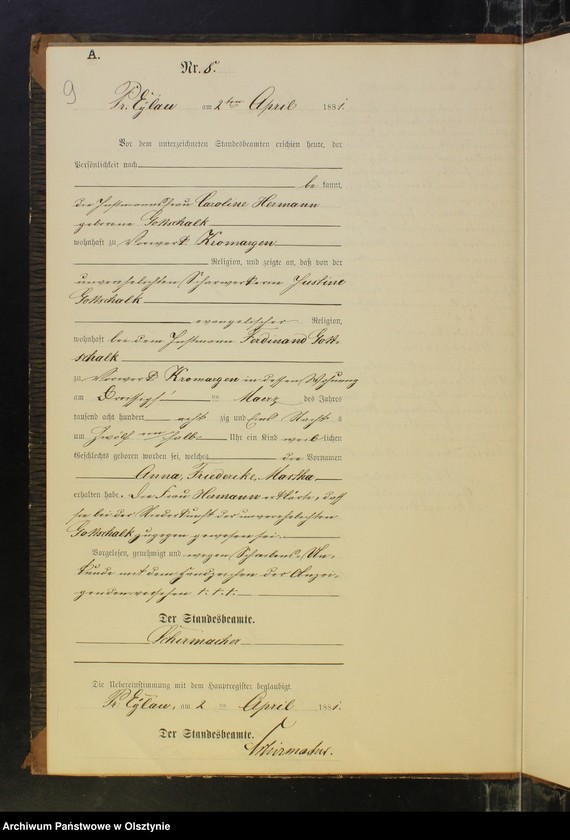 A.
9
Nr. 8.
Pr. Eylau am 2ten April 1881.
Vor dem unterzeichneten Standesbeamten erschien heute, der
Persönlichkeit nach
be kannt,
die Instmannsfrau Caroline Hermann
geborene Gottschalk
wohnhaft zu Vorwerk Kromargen
Religion, und zeigte an, daß von der
unverehelichten Scharwerkerin Justine
Gottschalk
evangelischer Religion,
wohnhaft bei dem Instmann Ferdinand Gott-
schalk
zu Vorwerk Kromargen in dessen Wohnung
am ten Maerz des Jahres
tausend acht hundert acht zig und Eins Nacht s
um Uhr ein Kind weib lichen
Geschlechts geboren worden sei, welches die Vornamen
Anna, Friedericke, Martha,
erhalten habe. Die Frau Hermann erklärte, daß
sie bei der Niederkunft der unverehelichten
Gottschalk zugegen gewesen sei.
Vorgelesen, genehmigt und wegen Schreibens Un-
kunde mit dem Handzeichen der Anzei-
genden versehen † † †
Der Standesbeamte.
Schirmacher
Die Uebereinstimmung mit dem Hauptregister beglaubigt.
Pr. Eylau, am 2 ten April 1881.
Der Standesbeamte.
Schirmacher.
Archiwum Państwowe w Olsztynie